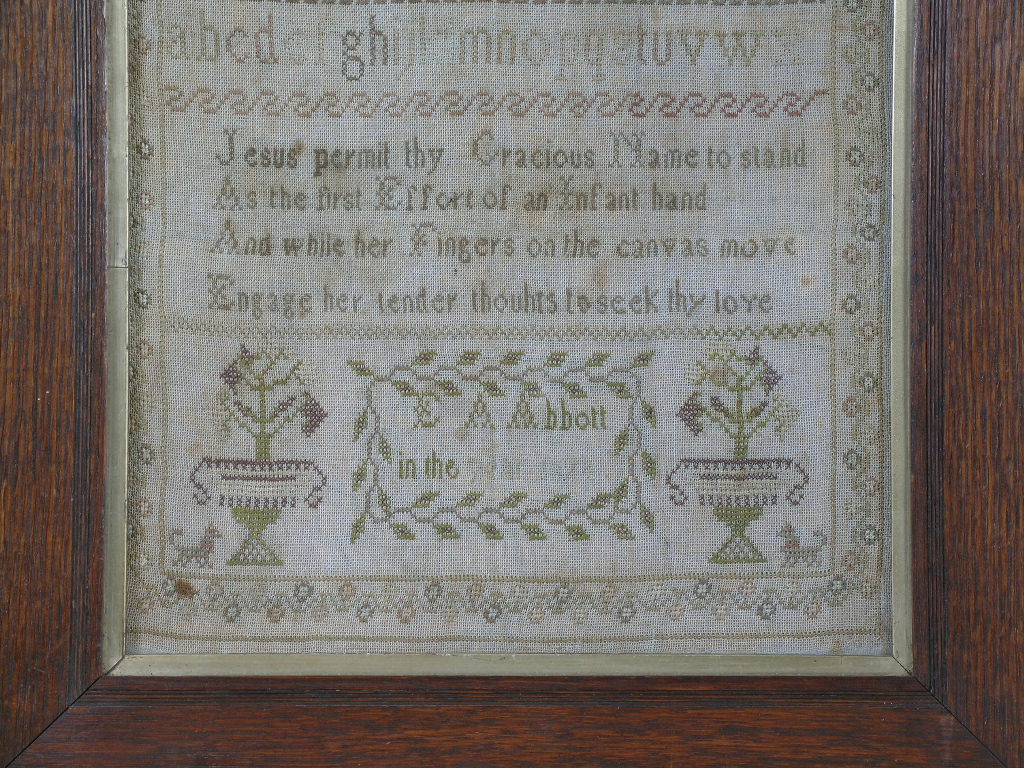 abcdefghijklmnopqrstuvw
Jesus permit thy Gracious Name to stand
As the first Effort of an Infant hand
And while her Fingers on the canvas move
Engage her tender thouhts to seek thy love
E A Abbott
in the year